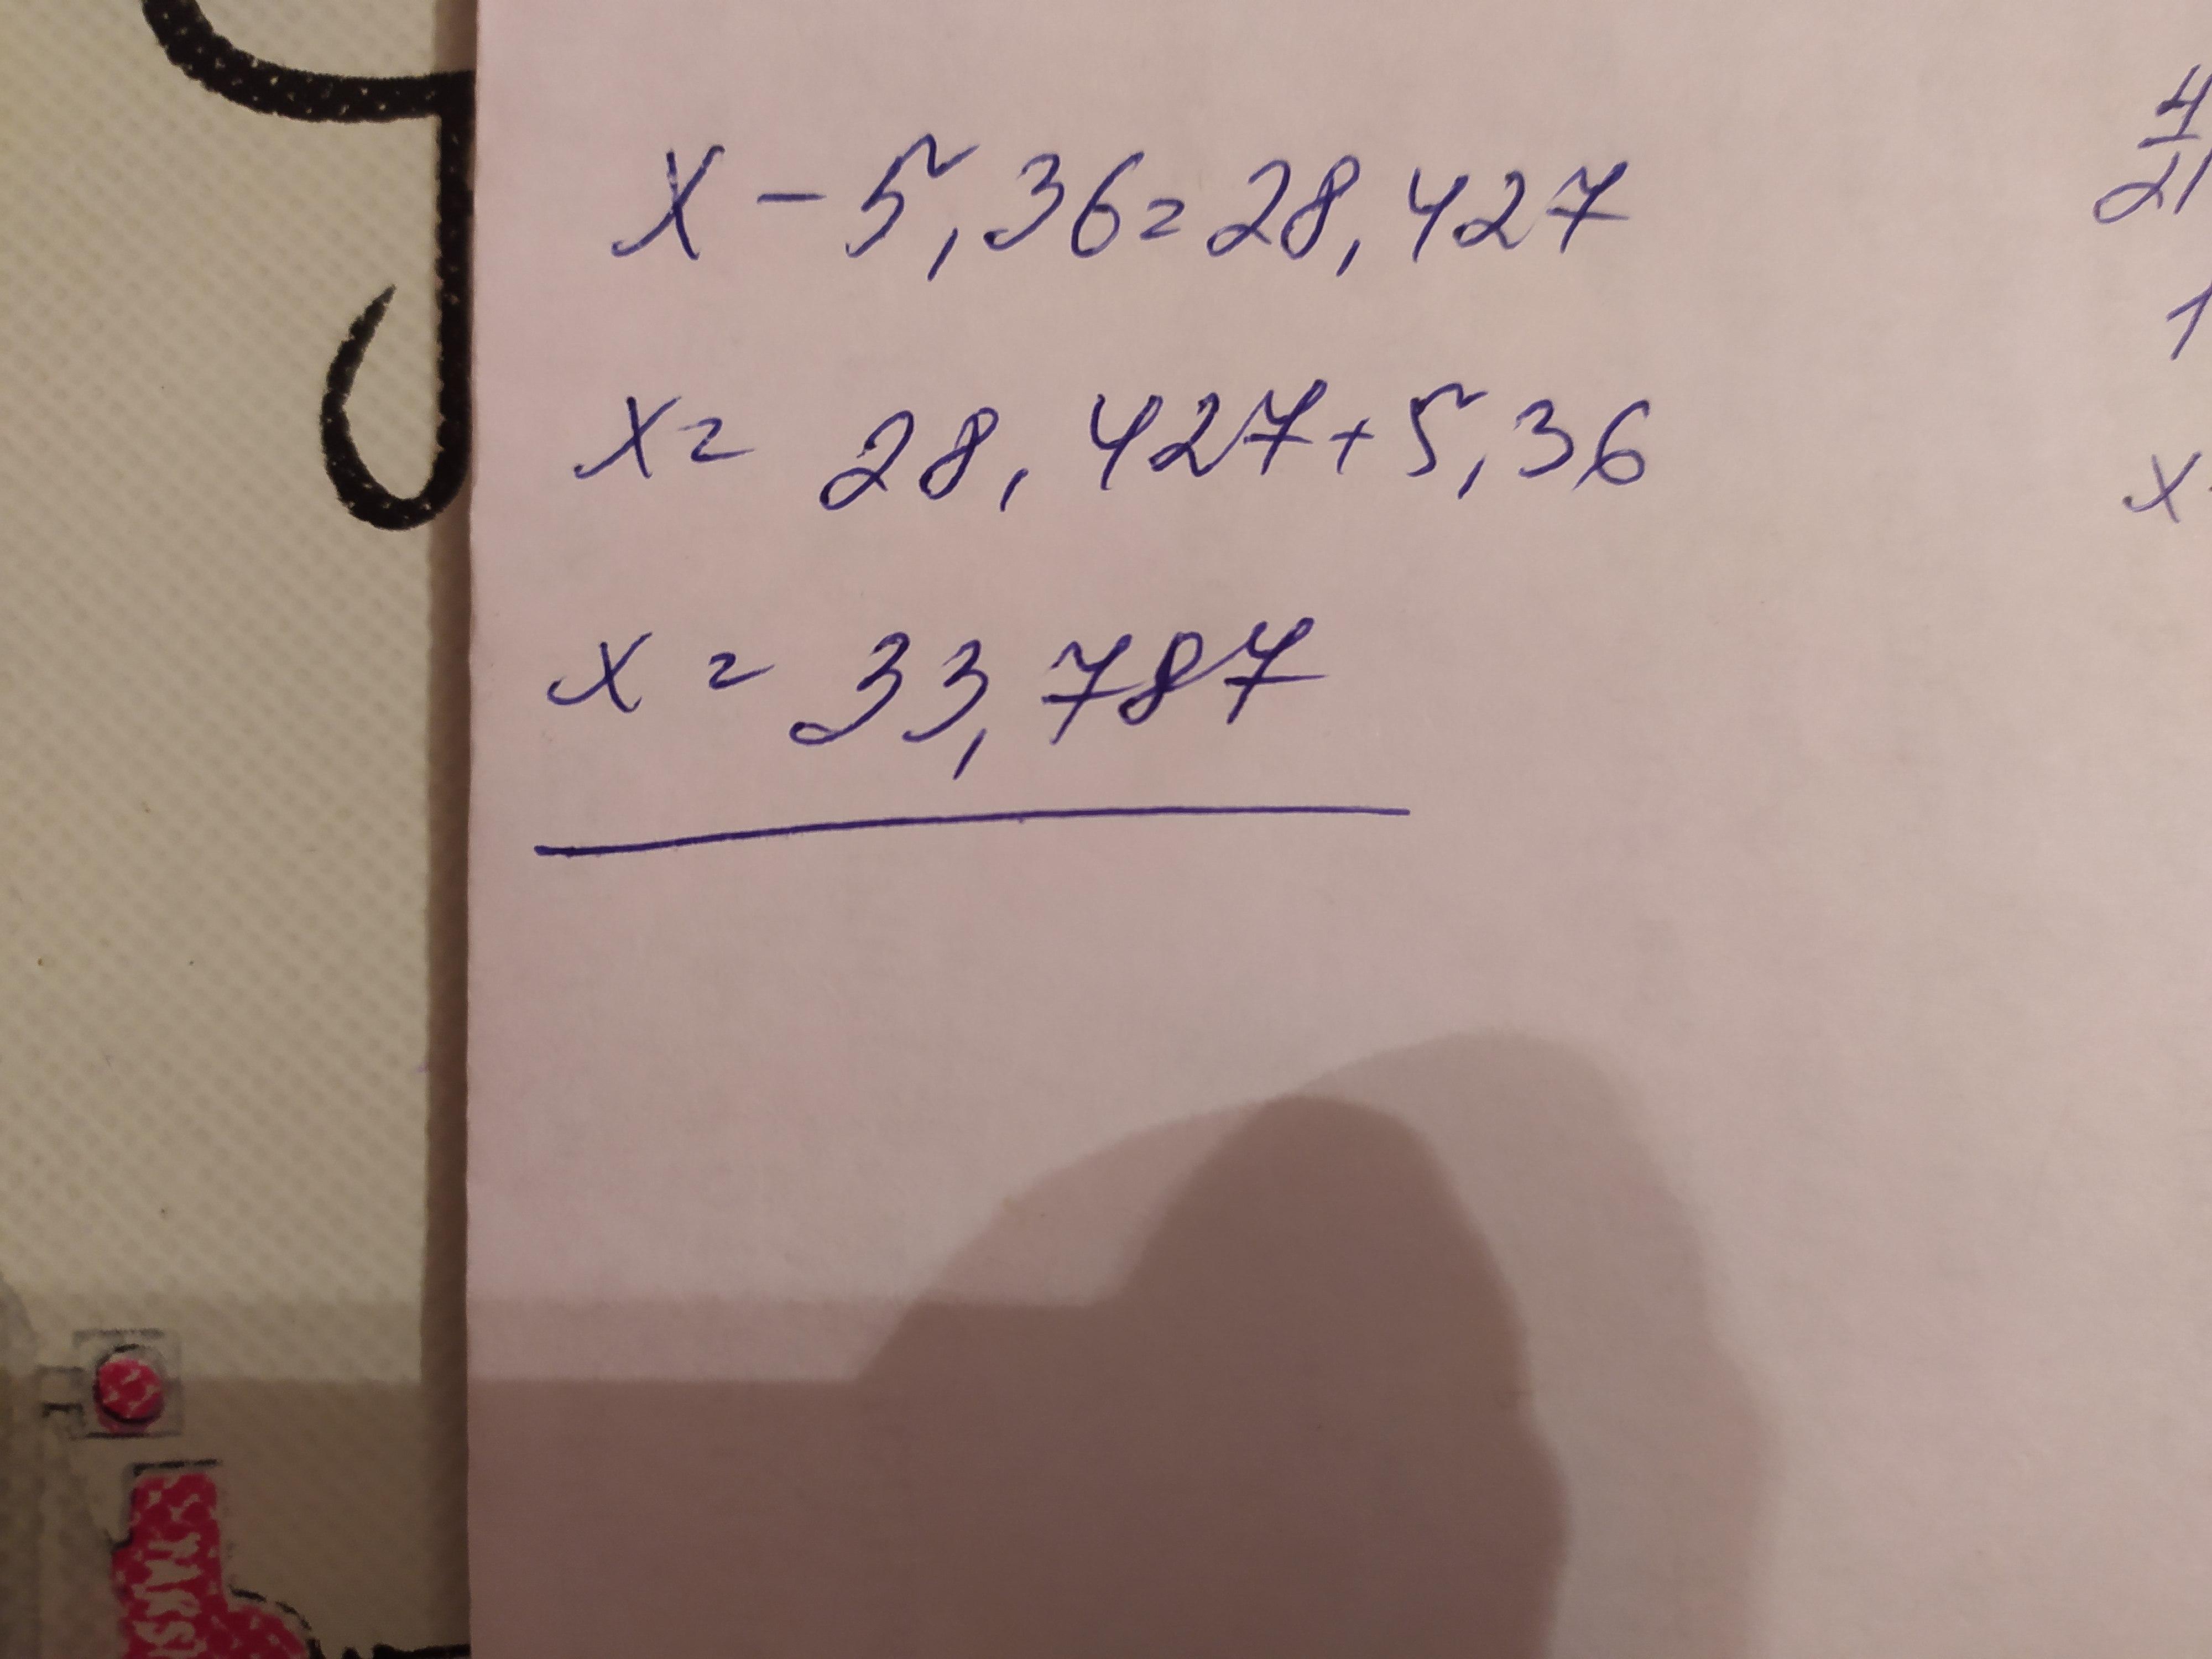 x - 5,36 = 28,427
x = 28,427 + 5,36
x = 33,787
4
21
1
x